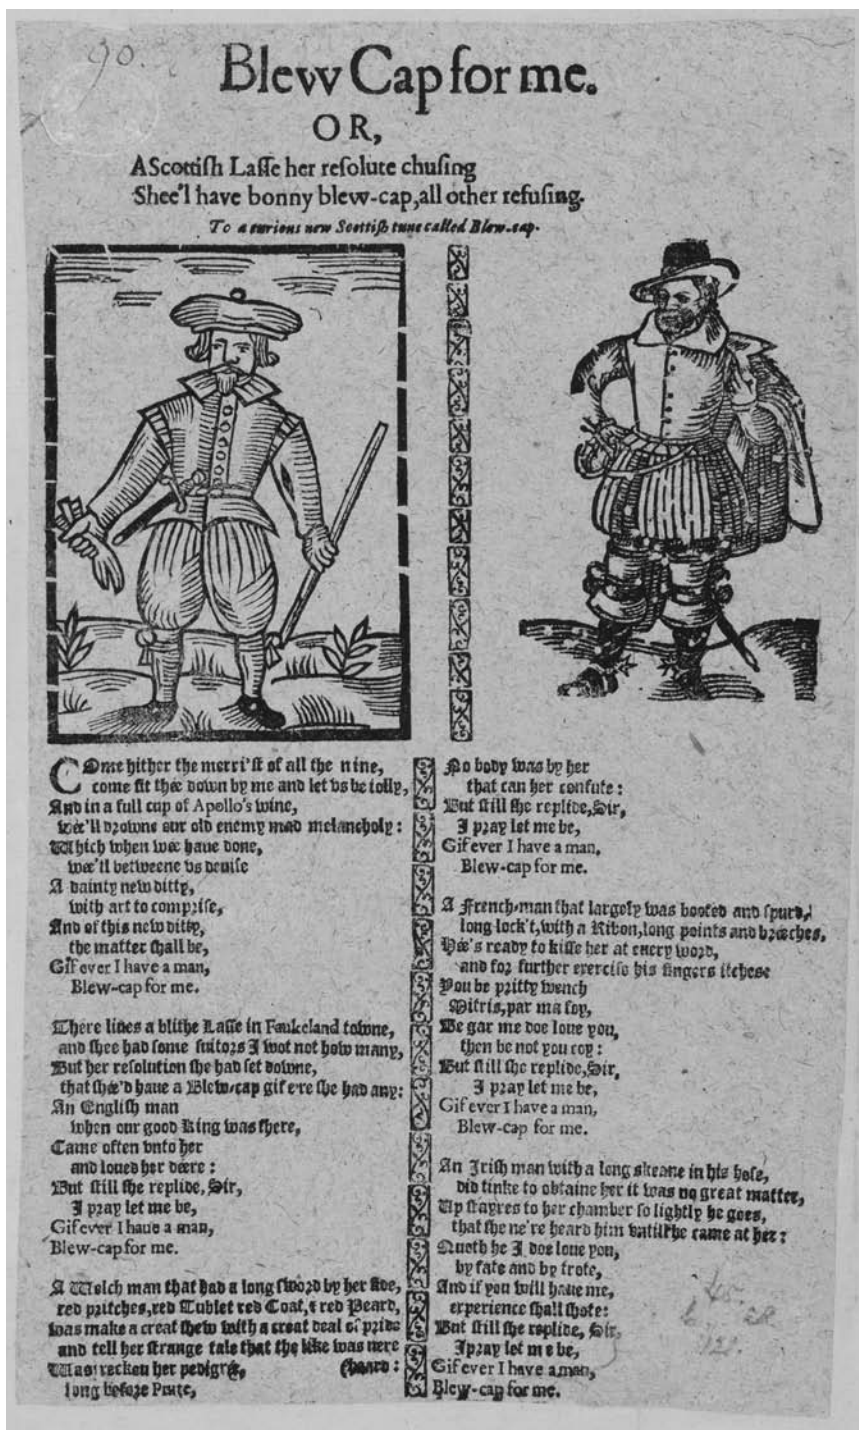 90.
Blew Cap for me.
OR,
A Scottish Lasse her resolute chusing
Shee'l have bonny blew-cap, all other refusing.
To a curious new Scottish tune called Blew-cap.
COme hither the merri'st of all the nine,
come sit thée down by me and let vs be iolly,
And in a full cup of Apollo's wine,
wée'll drowne our old enemy mad melancholy:
Which when wée haue done,
wée'll betweene vs deuise
A dainty new ditty,
with art to comprise,
And of this new ditty,
the matter shall be,
Gif ever I have a man,
Blew-cap for me.
There liues a blithe Lasse in Faukeland towne,
and shee had some suitors I wot not how many,
But her resolution she had set downe,
that shée'd haue a Blew-cap gif e're she had any:
An English man
when our good King was there,
Came often vnto her
and loued her déere:
But still she replide, Sir,
I pray let me be,
Gif ever I haue a man,
Blew-cap for me.
A Welch man that had a long sword by her side,
red pritches, red Tublet red Coat, & red Peard,
was make a creat shew with a creat deal of pride
and tell her strange tale that the like was nere
Was recken her pedigrée, (heard:
long before Prute,
No body was by her
that can her confute:
But still she replide, Sir,
I pray let me be,
Gif ever I have a man,
Blew-cap for me.
A French-man that largely was booted and spurd,
long lock't, with a Ribon, long points and bréeches,
Hée's ready to kisse her at euery word,
and for further exercise his fingers itchese
You be pritty wench
Mitris, par ma foy,
Be gar me doe loue you,
then be not you coy:
But still she replide, Sir,
I pray let me be,
Gif ever I have a man,
Blew-cap for me.
An Irish man with a long skeane in his hose,
did tinke to obtaine her it was no great matter,
Up stayres to her chamber so lightly he goes,
that she ne're heard him vntill he came at her:
Quoth he I doe loue you,
by fate and by trote,
And if you will haue me,
experience shall shote:
But still she replide, Sir,
I pray let me be,
Gif ever I have a man,
Blew-cap for me.